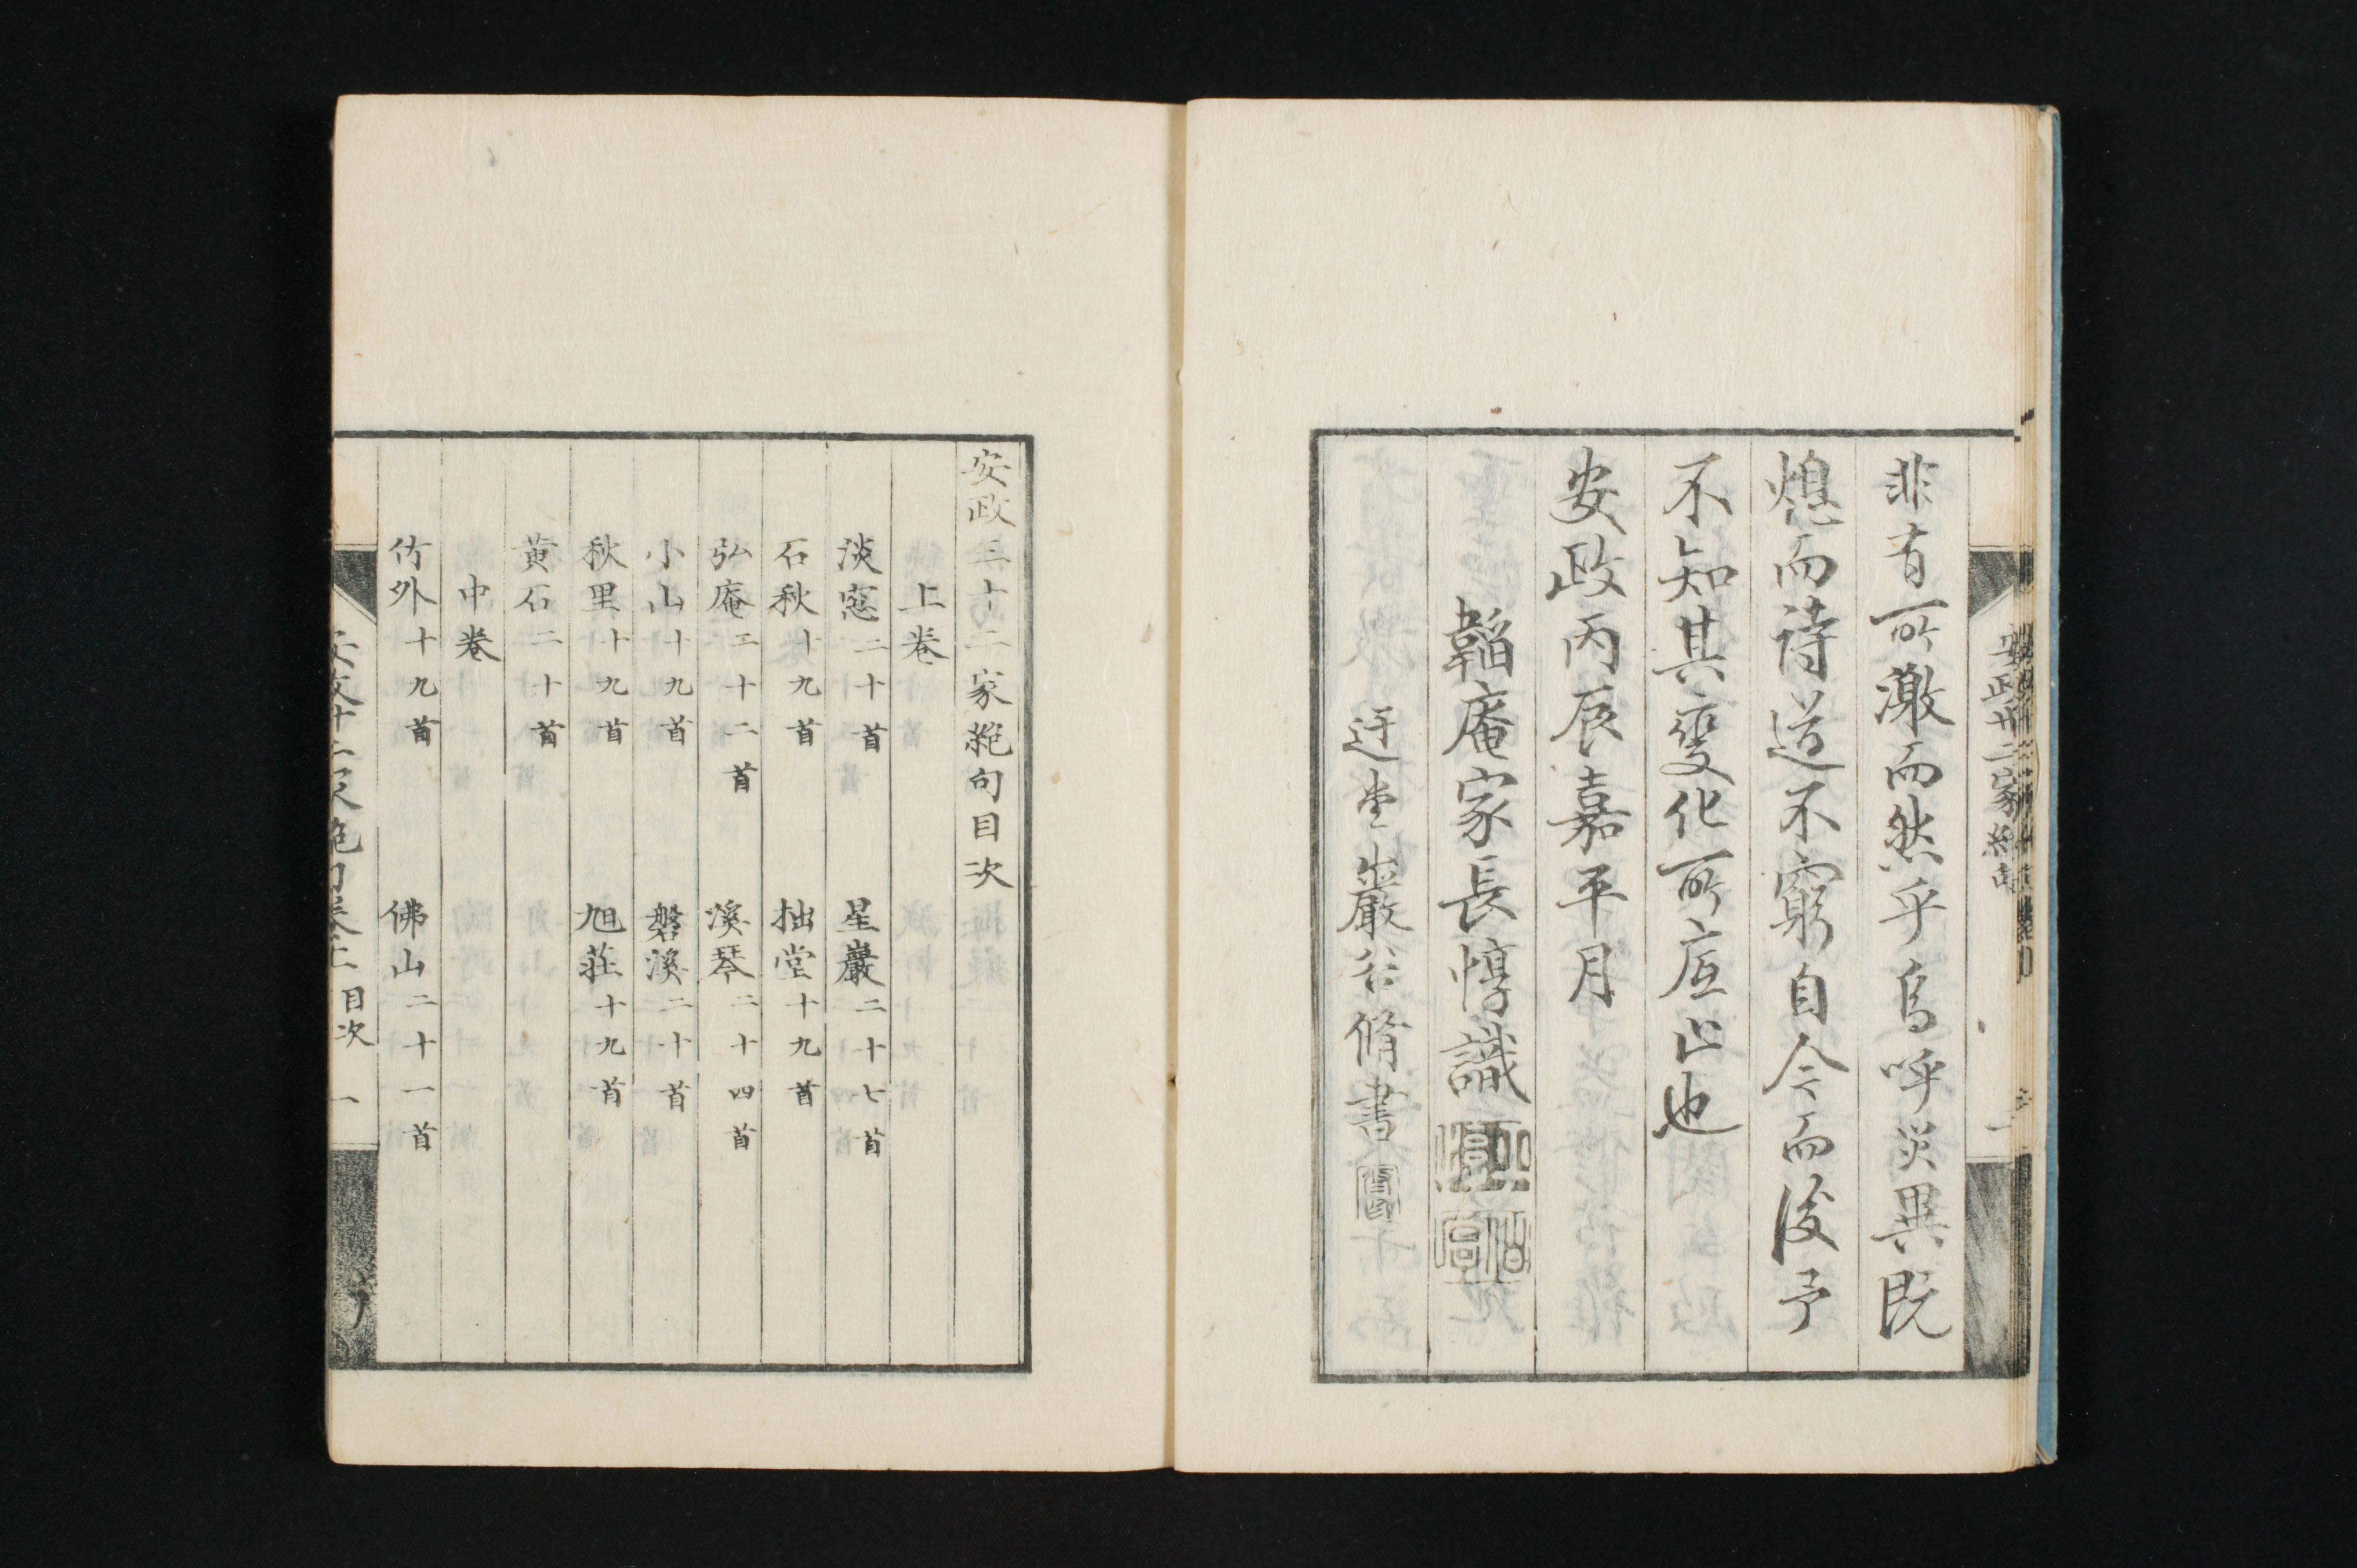 非有所激而然乎烏呼災異既
熄而詩道不窮自今而後予
不知其變化所底止也
安政丙辰嘉平月
韜庵家長惇識
迂堂巖谷脩書
安政三十二家絶句目次
上卷
淡窓二十首 星巖二十七首
石秋十九首 拙堂十九首
弘庵三十二首 溪琴二十四首
小山十九首 磐溪二十首
秋里十九首 旭莊十九首
黄石二十首
中卷
竹外十九首 佛山二十一首
目次 一